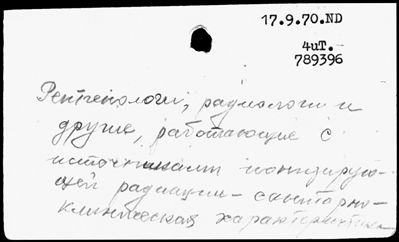 17.9.70.ND
4uT.-
789396
Рентгенологи, радиологи и
другие, работающие с
источниками ионизирую-
щей радиации - санитарно-
клиническая характеристика